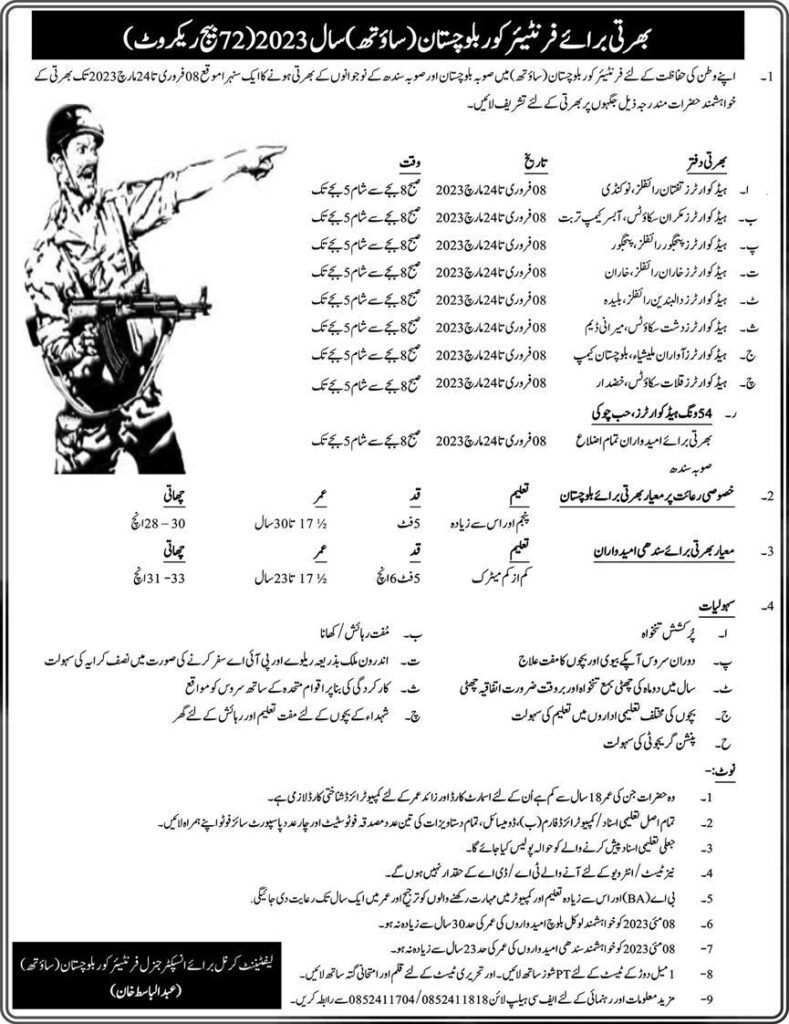 بھرتی برائے فرنٹیئر کور بلوچستان (ساؤتھ) سال 2023 (72 بیچ ریکروٹ)
1۔ اپنے وطن کی حفاظت کے لئے فرنٹیئر کور بلوچستان (ساؤتھ) میں صوبہ بلوچستان اور صوبہ سندھ کے نوجوانوں کے بھرتی ہونے کا ایک سنہرا موقع 08 فروری تا 24 مارچ 2023 تک بھرتی کے
خواہشمند حضرات مندرجہ ذیل جگہوں پر بھرتی کے لئے تشریف لائیں۔
بھرتی دفتر تاریخ وقت
ا۔ ہیڈ کوارٹرز تفتان رائفلز، نوکنڈی 08 فروری تا 24 مارچ 2023 صبح 8 بجے سے شام 5 بجے تک
ب۔ ہیڈ کوارٹرز مکران سکاؤٹس، آبسر کیمپ تربت 08 فروری تا 24 مارچ 2023 صبح 8 بجے سے شام 5 بجے تک
پ۔ ہیڈ کوارٹرز پنجگور رائفلز، پنجگور 08 فروری تا 24 مارچ 2023 صبح 8 بجے سے شام 5 بجے تک
ت۔ ہیڈ کوارٹرز خاران رائفلز، خاران 08 فروری تا 24 مارچ 2023 صبح 8 بجے سے شام 5 بجے تک
ٹ۔ ہیڈ کوارٹرز دالبندین رائفلز، بلیدہ 08 فروری تا 24 مارچ 2023 صبح 8 بجے سے شام 5 بجے تک
ث۔ ہیڈ کوارٹرز دشت سکاؤٹس، میرانی ڈیم 08 فروری تا 24 مارچ 2023 صبح 8 بجے سے شام 5 بجے تک
ج۔ ہیڈ کوارٹرز آواران ملیشیاء، بلوچستان کیمپ 08 فروری تا 24 مارچ 2023 صبح 8 بجے سے شام 5 بجے تک
چ۔ ہیڈ کوارٹرز قلات سکاؤٹس، خضدار 08 فروری تا 24 مارچ 2023 صبح 8 بجے سے شام 5 بجے تک
ر۔ 54 ونگ ہیڈ کوارٹرز، حب چوکی
بھرتی برائے امیدواران تمام اضلاع 08 فروری تا 24 مارچ 2023 صبح 8 بجے سے شام 5 بجے تک
صوبہ سندھ
2۔ خصوصی رعائت پر معیار بھرتی برائے بلوچستان تعلیم قد عمر چھاتی
پنجم اور اس سے زیادہ 5 فٹ 17 ½ تا 30 سال 28 – 30 انچ
3۔ معیار بھرتی برائے سندھی امیدواران تعلیم قد عمر چھاتی
کم از کم میٹرک 5 فٹ 6 انچ 17 ½ تا 23 سال 31 -33 انچ
4۔ سہولیات
ا۔ پُرکشش تنخواہ ب۔ مُفت رہائش / کھانا
پ۔ دوران سروس آپکے بیوی اور بچوں کا مفت علاج ت۔ اندرون ملک بذریعہ ریلوے اور پی آئی اے سفر کرنے کی صورت میں نصف کرایہ کی سہولت
ٹ۔ سال میں دو ماہ کی چھٹی بمع تنخواہ اور بروقت ضرورت اتفاقیہ چھٹی ث۔ کارکردگی کی بنا پر اقوام متحدہ کے ساتھ سروس کو مواقع
ج۔ بچوں کی مختلف تعلیمی اداروں میں تعلیم کی سہولت چ۔ شہداء کے بچوں کے لئے مفت تعلیم اور رہائش کے لئے گھر
ح۔ پنشن گریجوٹی کی سہولت
نوٹ:-
1۔ وہ حضرات جن کی عمر 18 سال سے کم ہے اُن کے لئے اسمارٹ کارڈ اور زائد عمر کے لئے کمپیوٹرائزڈ شناختی کارڈ لازمی ہے۔
2۔ تمام اصل تعلیمی اسناد / کمپیوٹرائزڈ فارم (ب)، ڈومیسائل، تمام دستاویزات کی تین عدد مصدقہ فوٹو سٹیٹ اور چار عدد پاسپورٹ سائز فوٹو اپنے ہمراہ لائیں۔
3۔ جعلی تعلیمی اسناد پیش کرنے والے کو حوالہ پولیس کیا جائے گا۔
4۔ نیز ٹیسٹ / انٹرویو کے لئے آنے والے ٹی اے / ڈی اے کے حقدار نہیں ہوں گے۔
5۔ بی اے (BA) اور اس سے زیادہ تعلیم اور کمپیوٹر میں مہارت رکھنے والوں کو ترجیح اور عمر میں ایک سال تک رعایت دی جائیگی.
6۔ 08 مئی 2023 کو خواہشمند لوکل بلوچ امیدواروں کی عمر کی حد 30 سال سے زیادہ نہ ہو۔
7۔ 08 مئی 2023 کو خواہشمند سندھی امیدواروں کی عمر کی حد 23 سال سے زیادہ نہ ہو۔
8۔ 1 میل دوڑ کے ٹیسٹ کے لئے PT شوز ساتھ لائیں۔ اور تحریری ٹیسٹ کے لئے قلم اور امتحانی گتہ ساتھ لائیں۔
9۔ مزید معلومات اور رہنمائی کے لئے ایف سی ہیلپ لائن 0852411704/0852411818 سے رابطہ کریں۔
لیفٹیننٹ کرنل برائے انسپکٹر جنرل فرنٹیئر کور بلوچستان (ساؤتھ)
(عبدالباسط خان)